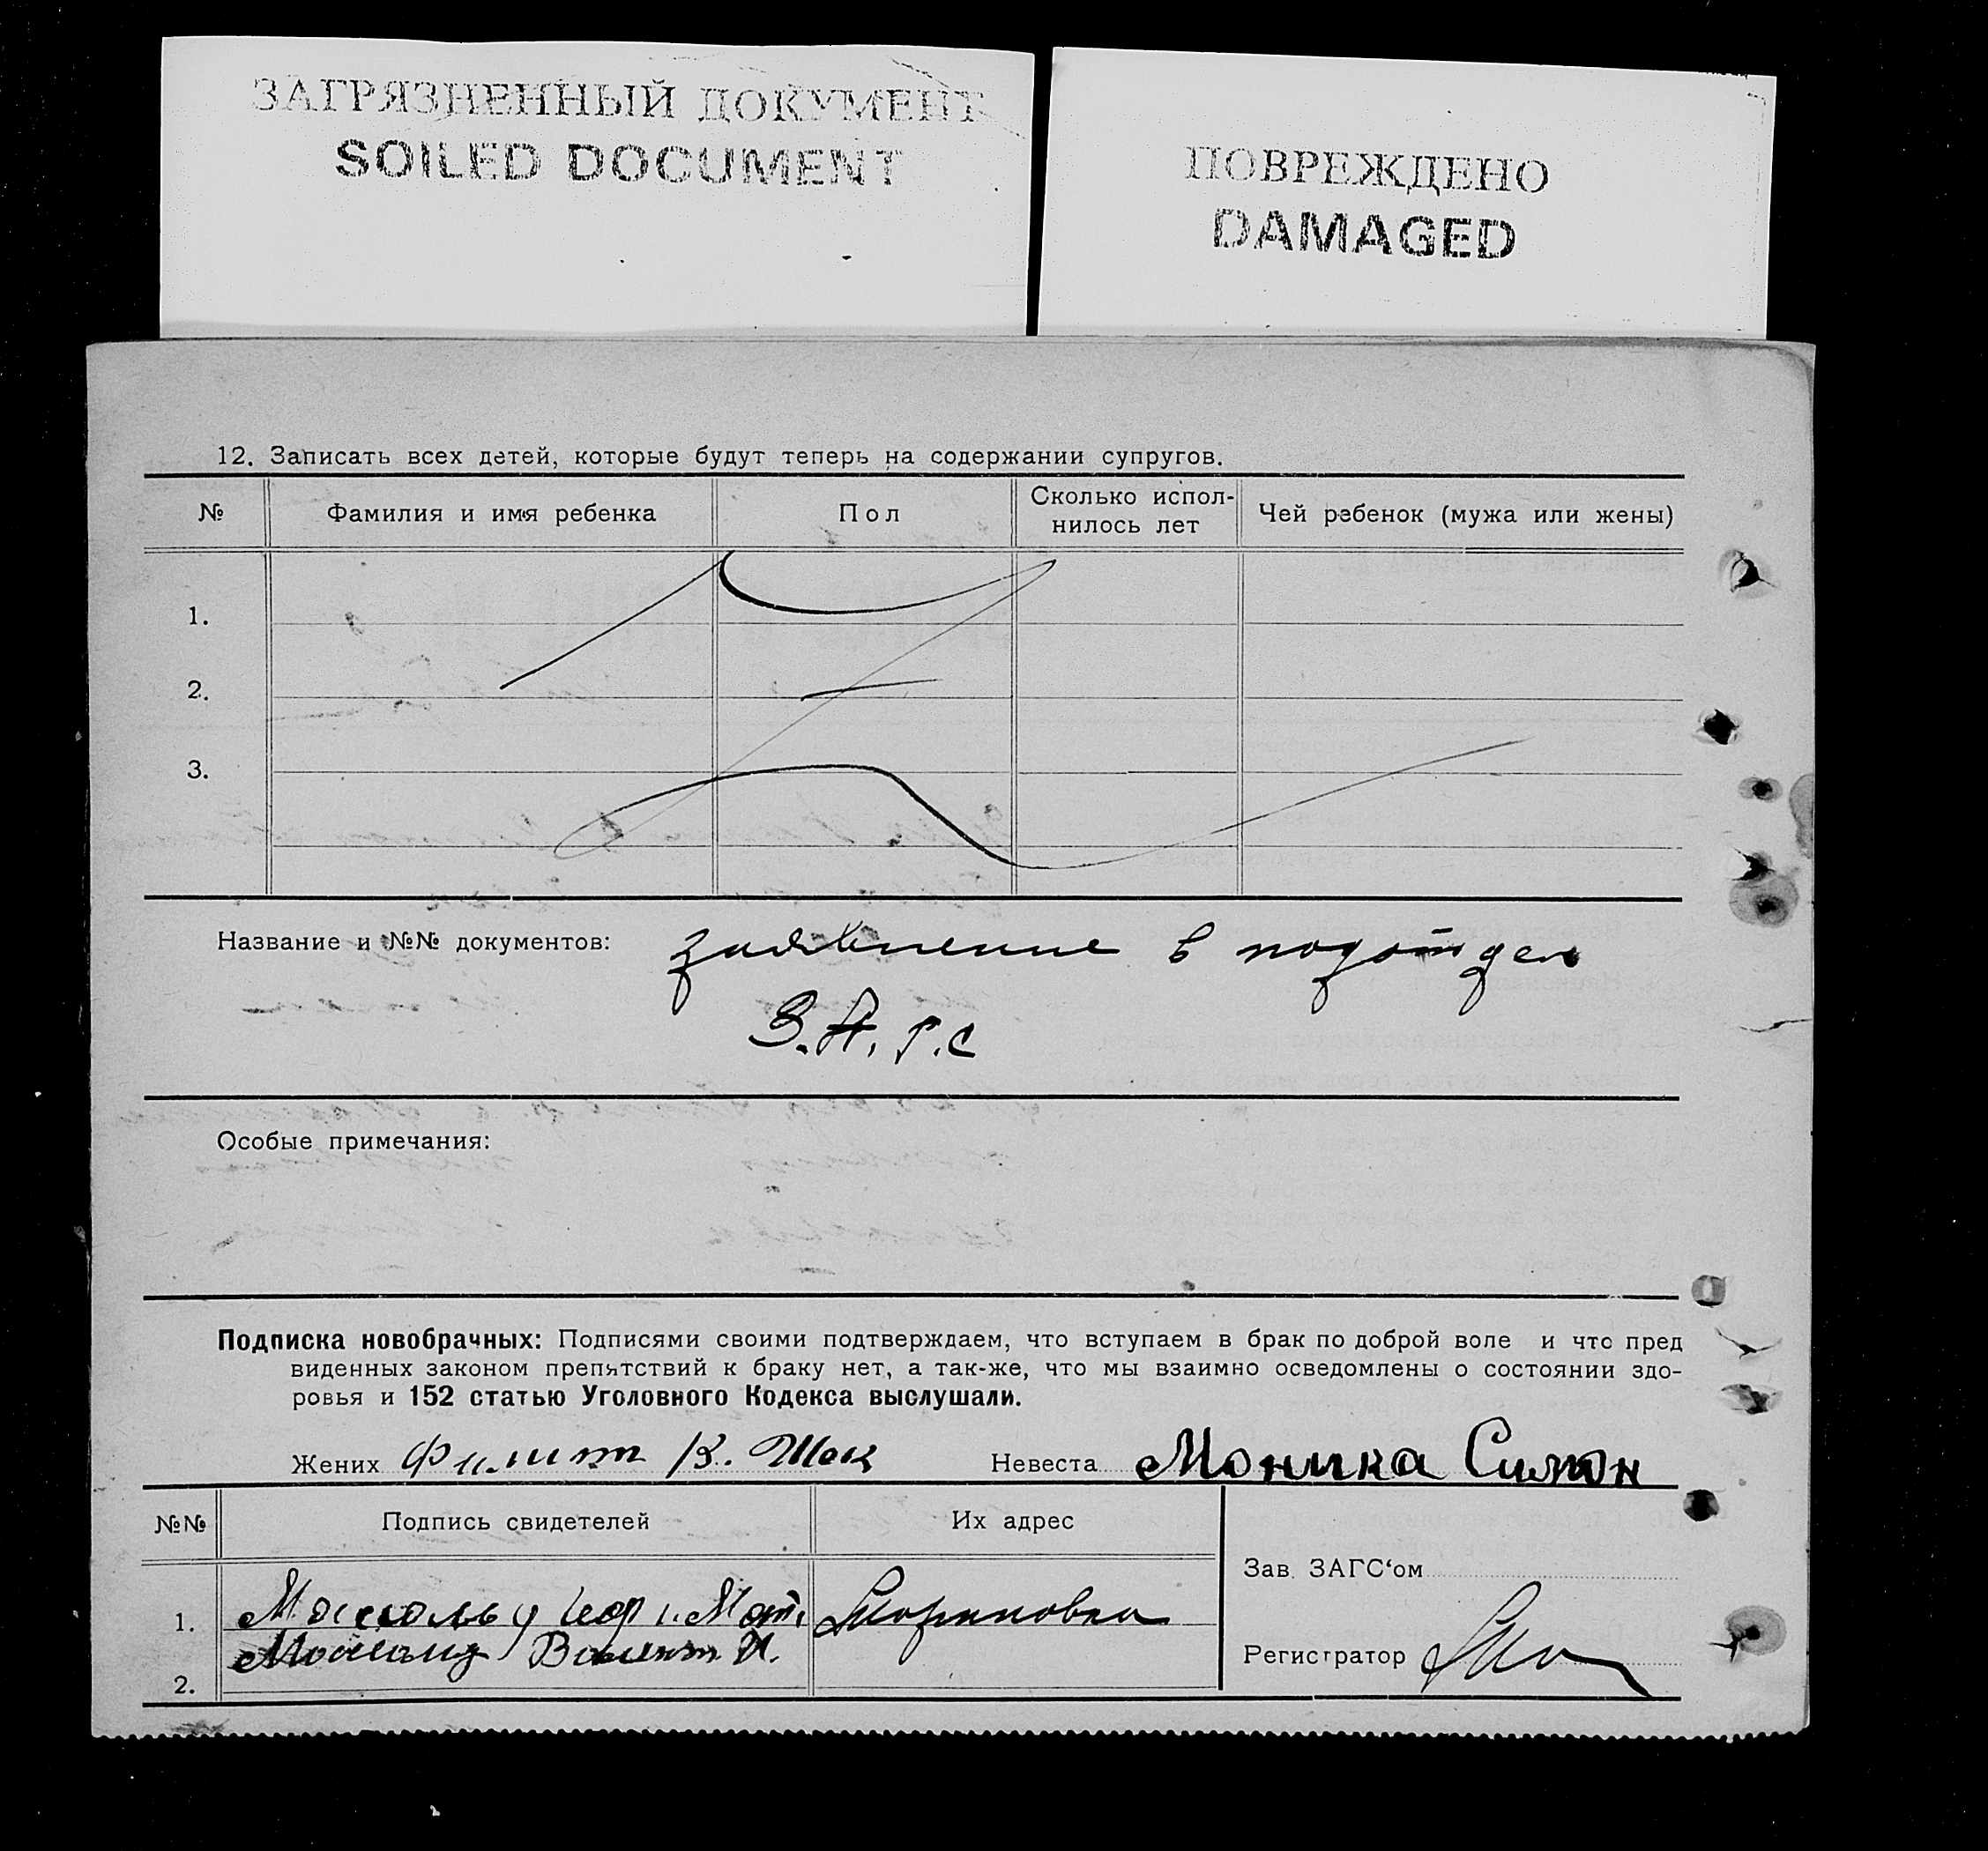 ЗАГРЯЗНЕННЫЙ ДОКУМЕНТ
SOILED DOCUMENT
ПОВРЕЖДЕНО
DAMAGED
12. Записать всех детей, которые будут теперь на содержании супругов.
№ Фамилия и имя ребенка Пол Сколько испол-нилось лет Чей ребенок (мужа или жены)
1.
2.
3.
Название и №№ документов: заявление в подотдел
З.А.Г.С
Особые примечания:
Подписка новобрачных: Подписями своими подтверждаем, что вступаем в брак по доброй воле и что пред
виденных законом препятствий к браку нет, а так-же, что мы взаимно осведомлены о состоянии здо-
ровья и 152 статью Уголовного Кодекса выслушали.
Жених Филипп В. Шек Невеста Моника Симон
№№ Подпись свидетелей Их адрес
Зав. ЗАГС'ом
1.
2.
Регистратор